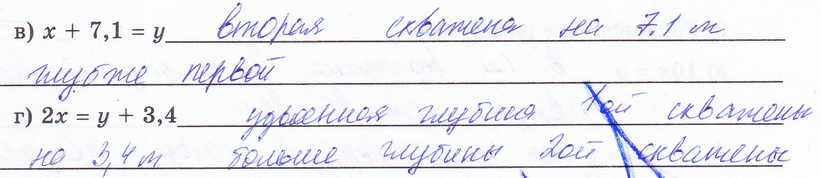 в) x + 7,1 = y вторая скважена на 7.1 м
глубже первой
г) 2x = y + 3,4 удвоенная глубина 1ой скважены
на 3,4 м больше глубины 2ой скважены